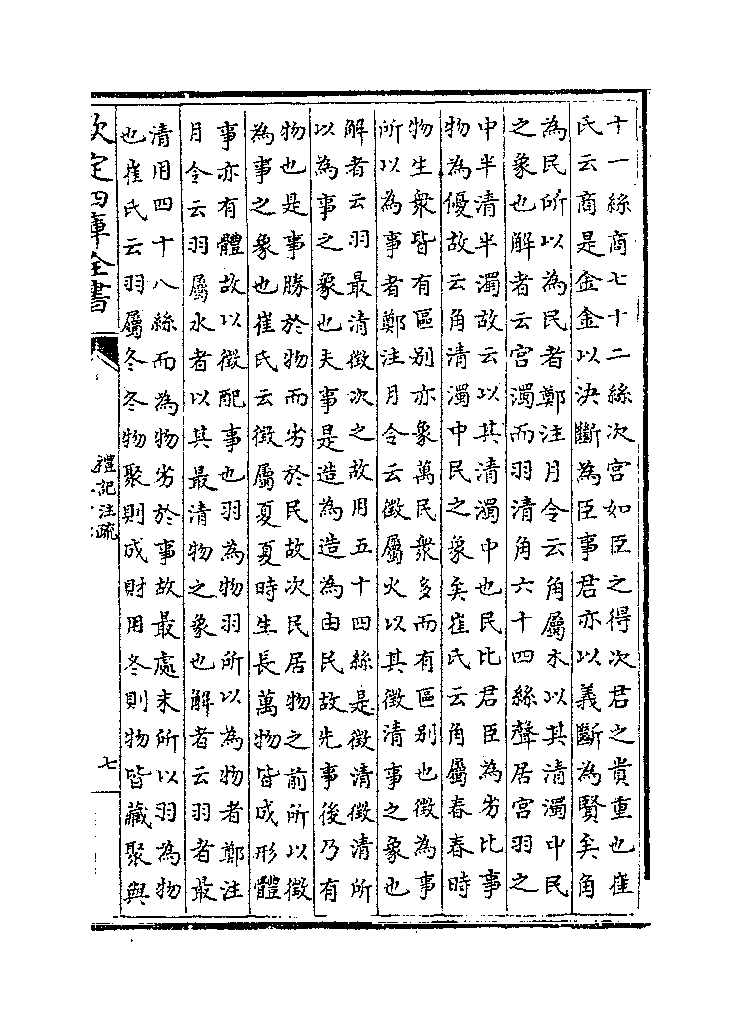 十一絲商七十二絲次宮如臣之得次君之貴重也崔
氏云商是金金以決斷為臣事君亦以義斷為賢矣角
為民所以為民者鄭注月令云角屬木以其清濁中民
之象也解者云宮濁而羽清角六十四絲聲居宮羽之
中半清半濁故云以其清濁中也民比君臣為劣比事
物為優故云角清濁中民之象矣崔氏云角屬春春時
物生衆皆有區别亦象萬民衆多而有區别也徵為事
所以為事者鄭注月令云徵屬火以其徵清事之象也
解者云羽最清徵次之故用五十四絲是徵清徵清所
以為事之象也夫事是造為造為由民故先事後乃有
物也是事勝於物而劣於民故次民居物之前所以徵
為事之象也崔氏云徵屬夏夏時生長萬物皆成形體
事亦有體故以徵配事也羽為物羽所以為物者鄭注
月令云羽屬水者以其最清物之象也解者云羽者最
清用四十八絲而為物劣於事故最處末所以羽為物
也崔氏云羽屬冬冬物聚則成財用冬則物皆藏聚與
欽定四庫全書
禮記注疏
七